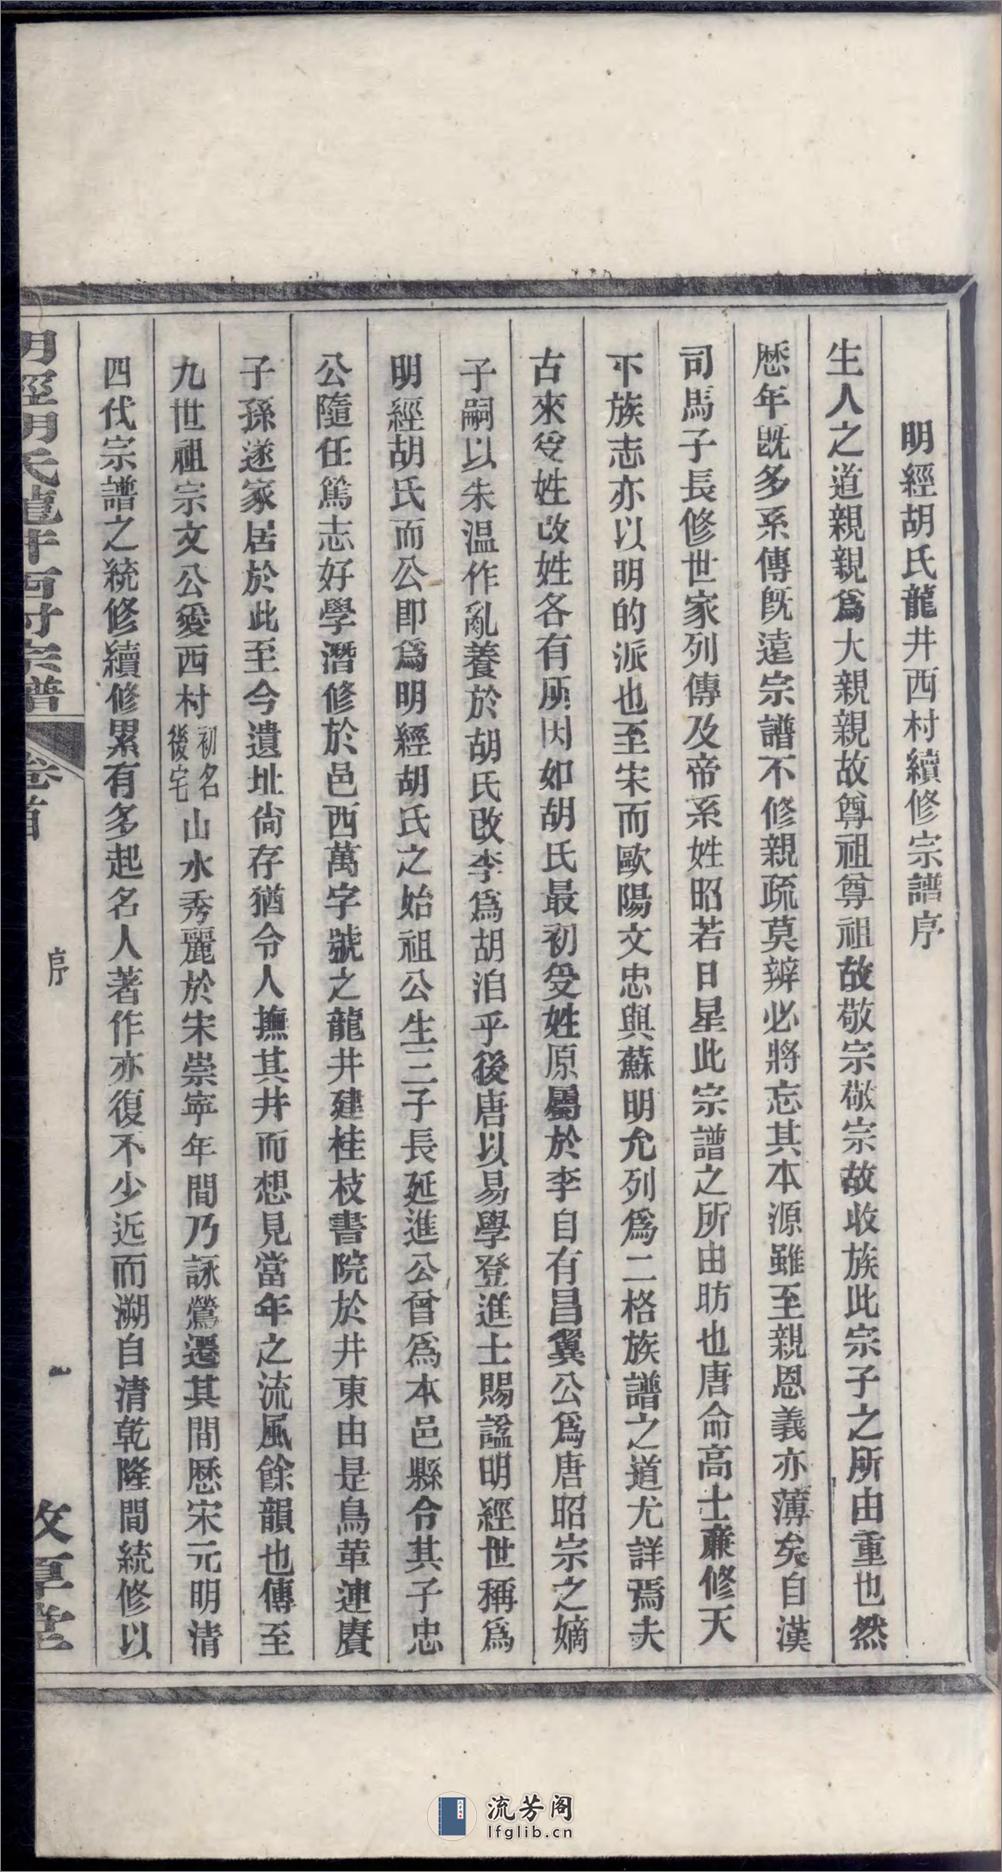 明經胡氏龍井西村續修宗譜序
生人之道親親爲大親親故尊祖尊祖故敬宗敬宗故收族此宗子之所由重也然
歷年既多系傳既遠宗譜不修親疏莫辨必將忘其本源雖至親恩義亦薄矣自漢
司馬子長修世家列傳及帝系姓昭若日星此宗譜之所由昉也唐命高士亷修天
下族志亦以明的派也至宋而歐陽文忠與蘇明允列爲二格族譜之道尤詳焉夫
古來受姓改姓各有所因如胡氏最初受姓原屬於李自有昌翼公爲唐昭宗之嫡
子嗣以朱溫作亂養於胡氏改李爲胡洎乎後唐以易學登進士賜謚明經世稱爲
明經胡氏而公即爲明經胡氏之始祖公生三子長延進公曾爲本邑縣令其子忠
公隨任篤志好學潛修於邑西萬字號之龍井建桂枝書院於井東由是鳥革連賡
子孫遂家居於此至今遺址尚存猶令人撫其井而想見當年之流風餘韻也傳至
九世祖宗文公愛西村初名後宅山水秀麗於宋崇寧年間乃詠鶯遷其間歷宋元明清
四代宗譜之統修續修累有多起名人著作亦復不少近而溯自清乾隆間統修以
明經胡氏龍井西村宗譜 卷首 序 一 敦厚堂
流芳阁
lfglib.cn